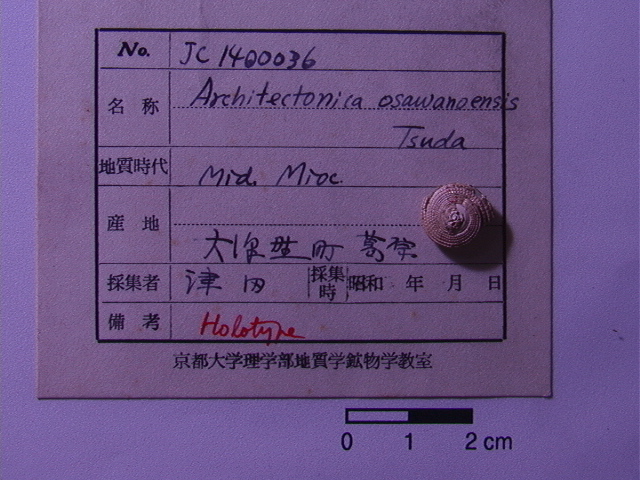 No. JC 1400036
名称 Architectonica osawanoensis
Tsuda
地質時代 Mid. Mioc.
産地
大沢野町 葛原
採集者 津田 採集時 昭和 年 月 日
備考 Holotype
京都大学理学部地質学鉱物学教室
0 1 2 cm